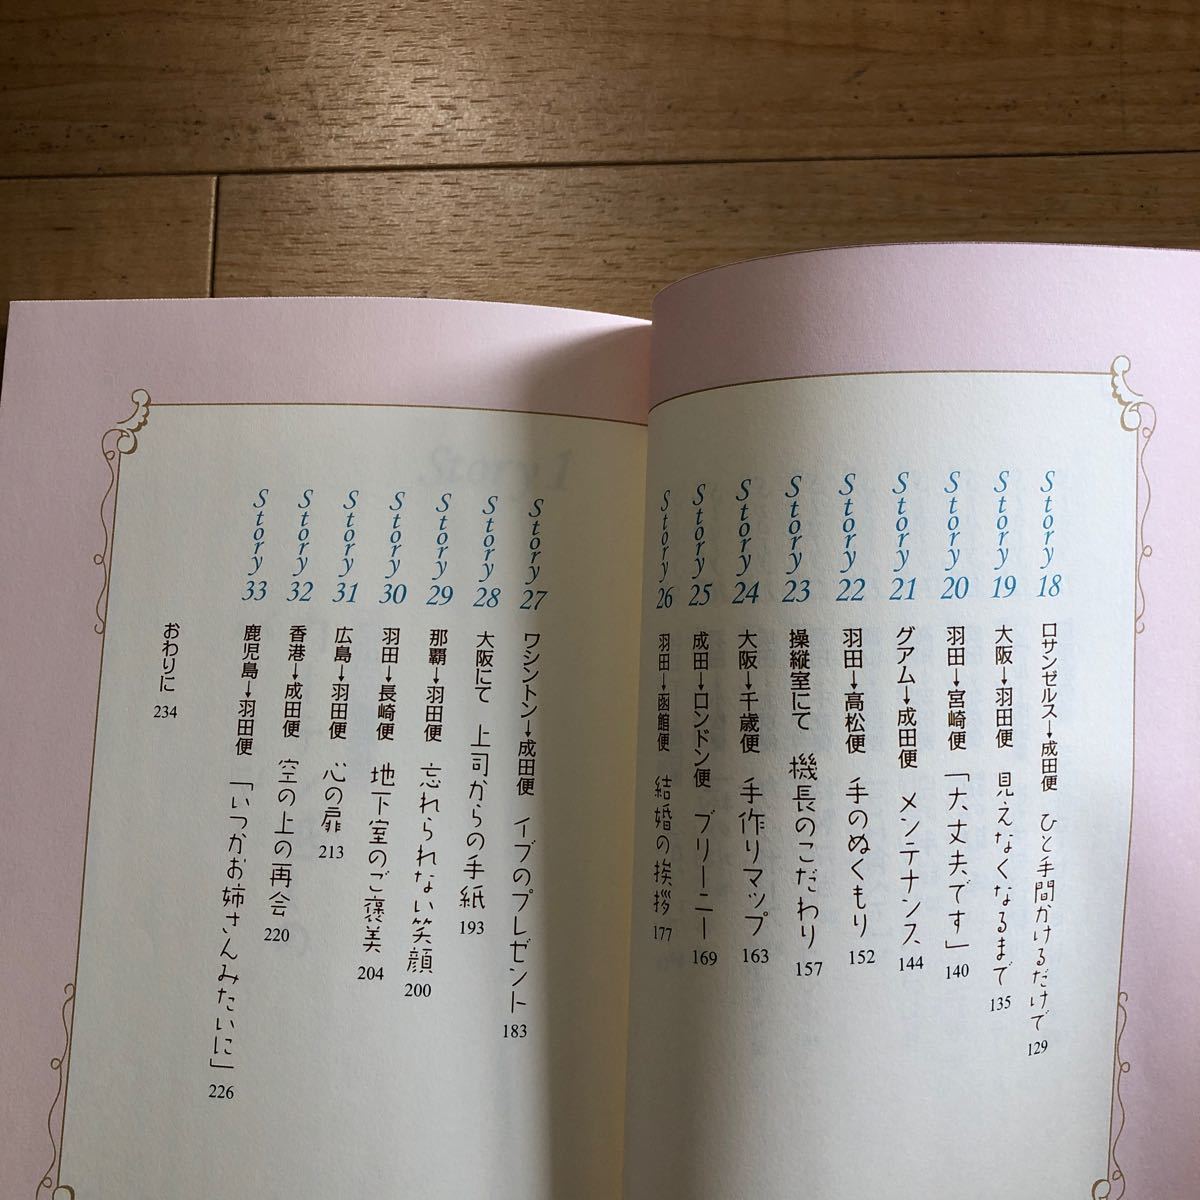 Story 18 ロサンゼルス→成田便 ひと手間かけるだけで 129
Story 19 大阪→羽田便 見えなくなるまで 135
Story 20 羽田→宮崎便 「大丈夫です」 140
Story 21 グアム→成田便 メンテナンス 144
Story 22 羽田→高松便 手のぬくもり 152
Story 23 操縦室にて 機長のこだわり 157
Story 24 大阪→千歳便 手作りマップ 163
Story 25 成田→ロンドン便 ブリーニー 169
Story 26 羽田→函館便 結婚の挨拶 177
Story 27 ワシントン→成田便 イブのプレゼント 183
Story 28 大阪にて 上司からの手紙 193
Story 29 那覇→羽田便 忘れられない笑顔 200
Story 30 羽田→長崎便 地下室のご褒美 204
Story 31 広島→羽田便 心の扉 213
Story 32 香港→成田便 空の上の再会 220
Story 33 鹿児島→羽田便 「いつかお姉さんみたいに」 226
おわりに 234
Story 1